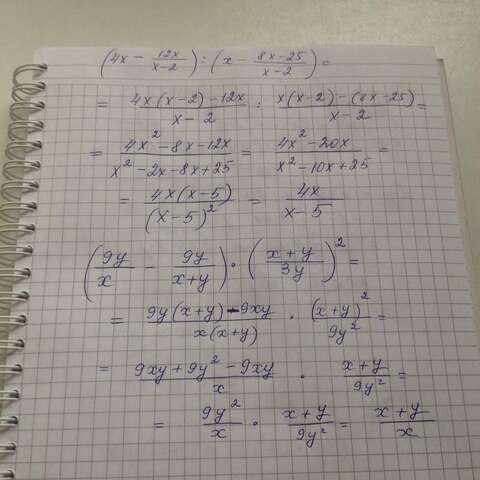 (4x - 12x/(x-2)) : (x - (8x-25)/(x-2)) =
= (4x(x-2)-12x)/(x-2) : (x(x-2)-(8x-25))/(x-2) =
= (4x²-8x-12x)/(x²-2x-8x+25) = (4x²-20x)/(x²-10x+25) =
= 4x(x-5)/(x-5)² = 4x/(x-5)
(9y/x - 9y/(x+y)) · ((x+y)/3y)² =
= (9y(x+y)-9xy)/(x(x+y)) · (x+y)²/9y² =
= (9xy+9y²-9xy)/x · (x+y)/9y² =
= 9y²/x · (x+y)/9y² = (x+y)/x